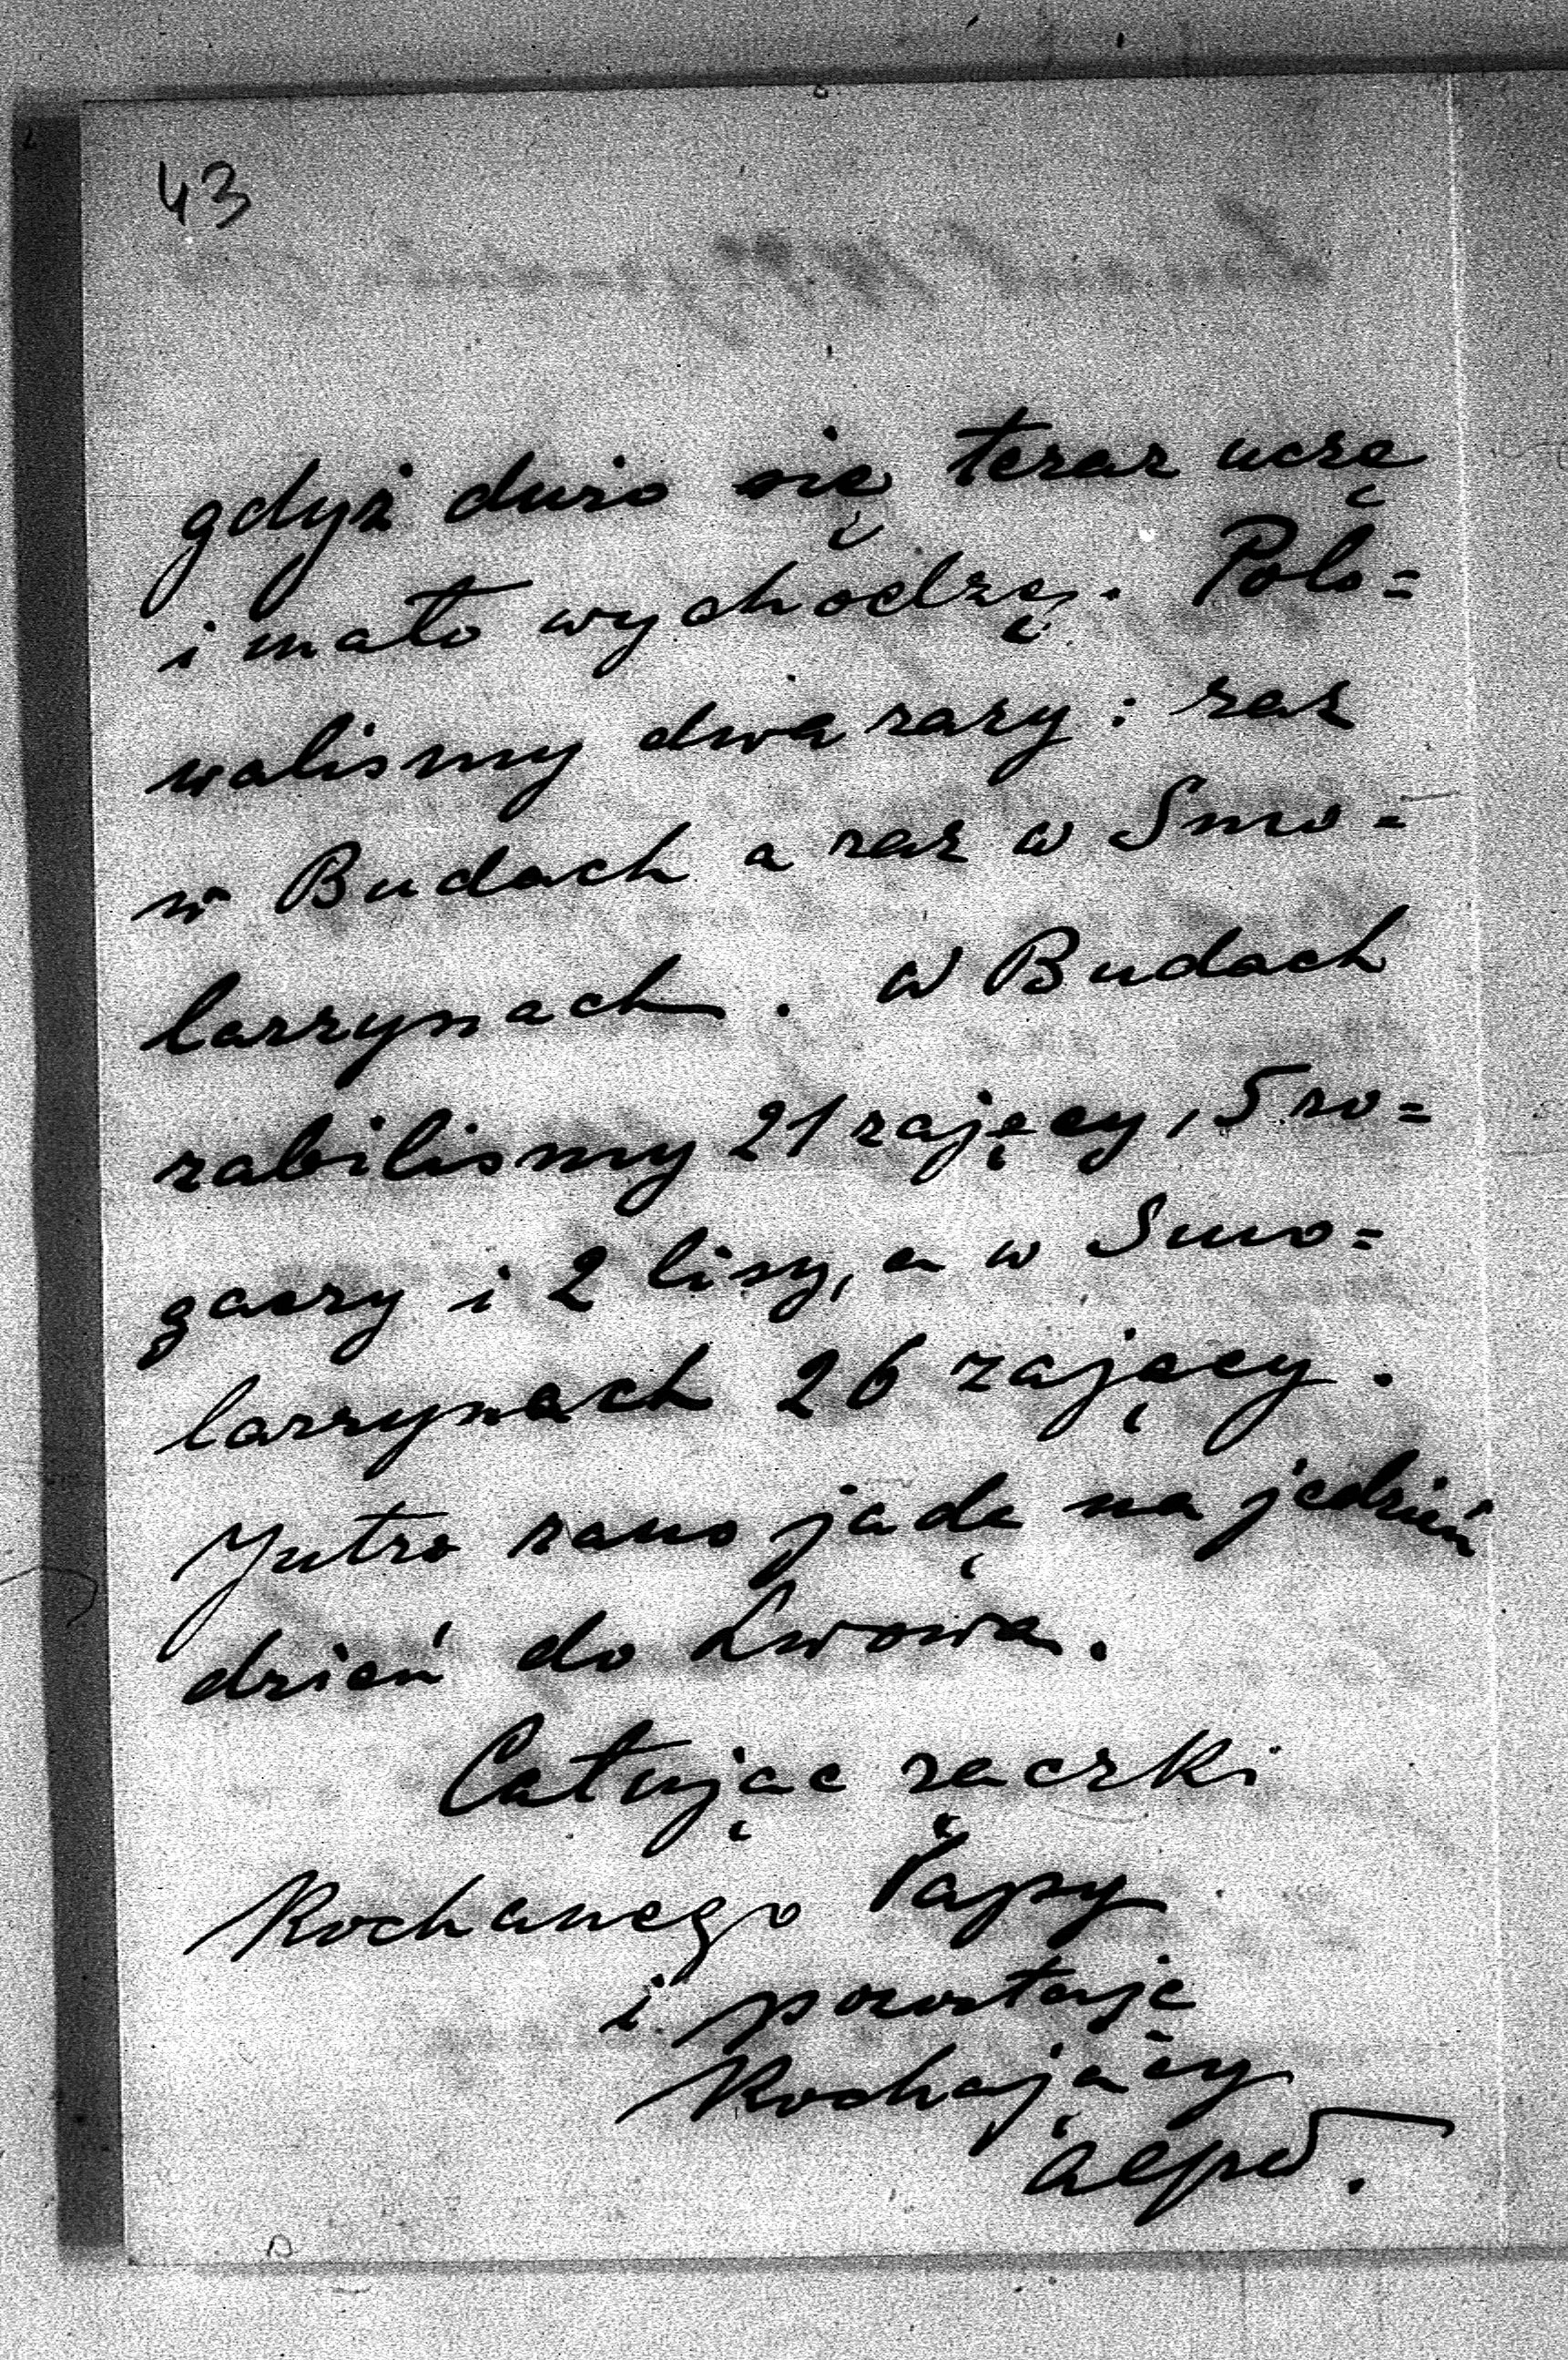 43
gdyż dużo się teraz uczę
i mało wychodzę. Polo=
waliśmy dwa razy: raz
w Budach a raz w Smo=
larzynach. W Budach
zabiliśmy 21 zajęcy, 5 ro=
gaczy i 2 lisy, a w Smo=
larzynach 26 zajęcy.
Jutro rano jadę na jedzień
dzień do Lwowa.
Całując rączki
Kochanego Papy
i pozostaję
Kochający
Alfred.